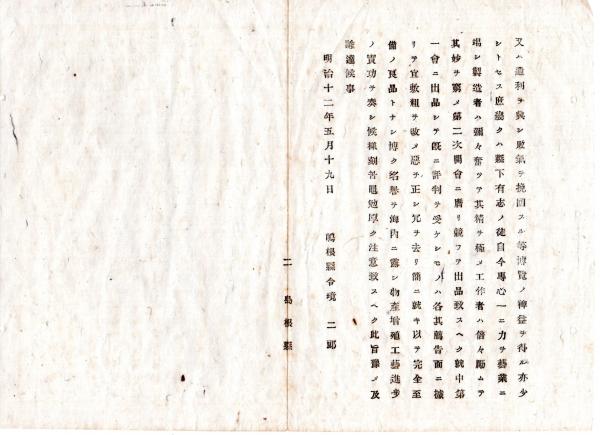 又ハ遺利ヲ興シ敗氣ヲ挽回スル等博覽ノ裨益ヲ得ル亦少
シトセス庶幾クハ縣下有志ノ徒自今專心一ニ力ヲ藝業ニ
竭シ製造者ハ彌々奮ツテ其精ヲ極メ工作者ハ倍々勵ムテ
其妙ヲ窮メ第二次開會ニ膺リ競フテ出品致スヘク就中第
一會ニ出品シテ旣ニ評判ヲ受ケシモノハ各其薦告面ニ據
リテ宜敷粗ヲ收メ惡ヲ正シ冗ヲ去リ簡ニ就キ以テ完全至
備ノ良品トナシ博ク名譽ヲ海內ニ露シ物產增殖工藝進步
ノ實功ヲ奏シ候樣刻苦黽勉厚ク注意致スヘク此旨豫メ及
諭達候事
明治十二年五月十九日
島根縣令境 二郞
二 島根縣